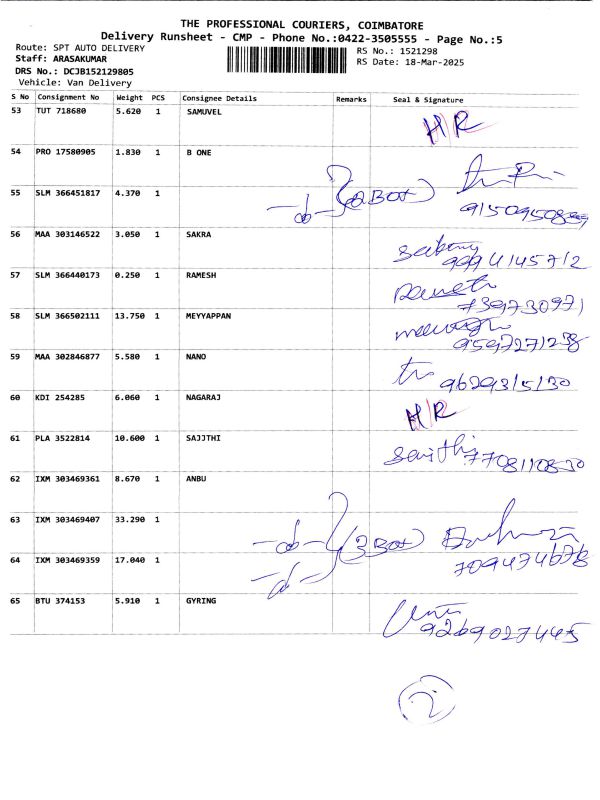 THE PROFESSIONAL COURIERS, COIMBATORE
Delivery Runsheet - CMP - Phone No.:0422-3505555 - Page No.:5
Route: SPT AUTO DELIVERY
RS No.: 1521298
Staff: ARASAKUMAR
RS Date: 18-Mar-2025
DRS No.: DCJB152129805
Vehicle: Van Delivery
S No Consignment No Weight PCS Consignee Details Remarks Seal & Signature
53 TUT 718680 5.620 1 SAMUVEL H/R
54 PRO 17580905 1.830 1 B ONE
55 SLM 366451817 4.370 1 -do- (2 Box)
56 MAA 303146522 3.050 1 SAKRA 9994145712
57 SLM 366440173 0.250 1 RAMESH 7397309971
58 SLM 366502111 13.750 1 MEYYAPPAN 9597271238
59 MAA 302846877 5.580 1 NANO 9629315130
60 KDI 254285 6.060 1 NAGARAJ H/R
61 PLA 3522814 10.600 1 SAJJTHI 7708110830
62 IXM 303469361 8.670 1 ANBU
63 IXM 303469407 33.290 1 -do- (3 Box)
64 IXM 303469359 17.040 1 -do- 709474678
65 BTU 374153 5.910 1 GYRING 9269027445